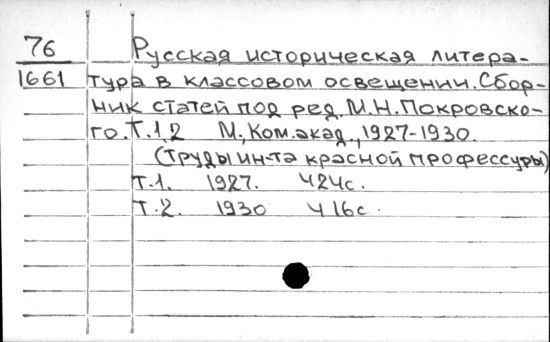 76 Русская историческая литера-
1661 тура в классовом освещении. Сбор-
ник статей под ред. М.Н. Покровско-
го. Т.1.2 М., Ком.акад., 1927-1930.
(Труды ин-та красной профессуры)
Т.1. 1927. 424с.
Т.2. 1930 416с.